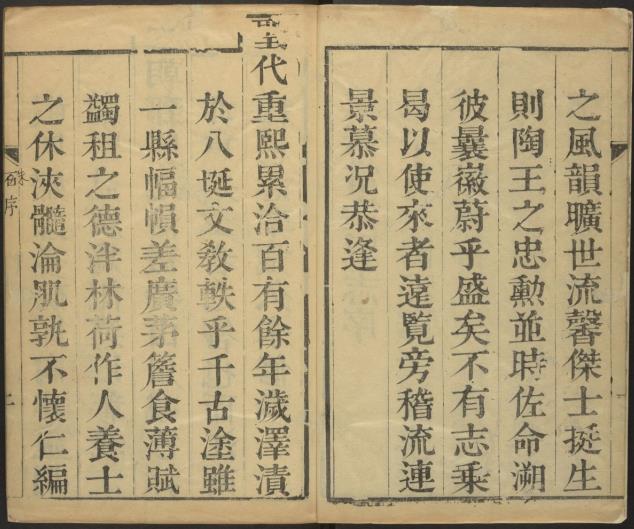 之風韻曠世流馨傑士挺生
則陶王之忠勳並時佐命溯
彼曩徽蔚乎盛矣不有志乗
曷以使來者遠覽旁稽流連
景慕況恭逢
聖代重熙累洽百有餘年濊澤漬
於八埏文敎軼乎千古淦雖
一縣幅幀差廣茅簷食薄賦
蠲租之德泮林荷作人養士
之休浹髓淪肌孰不懷仁編
序